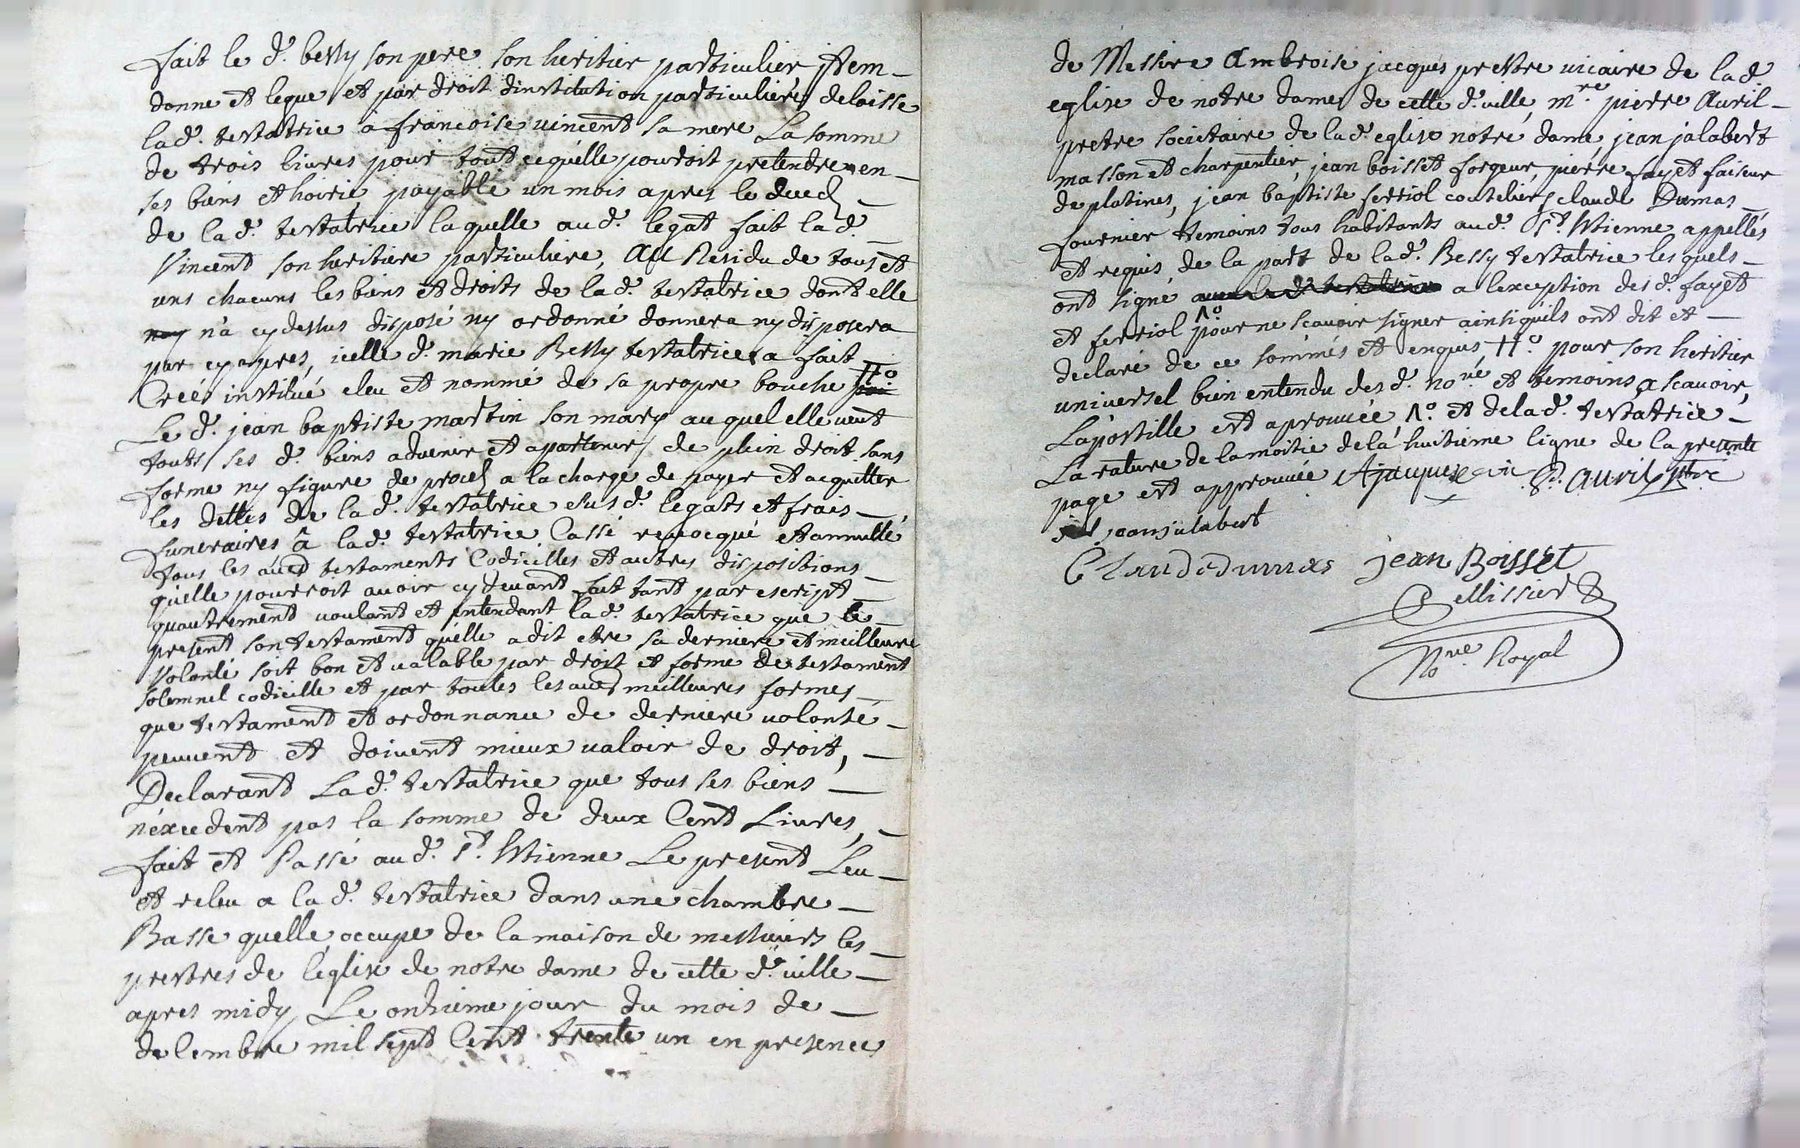 fait le d.^t bessy son pere son heritier particulier Item
donne et legue et par droit dinstitution particuliere delaisse
lad.^e testatrice a francoise vincent sa mere La somme
de trois livres pour tout ce quelle pourroit pretendre en
ses biens et hoirie, payable un mois apres le deced
de lad.^e testatrice laquelle aud.^t legat fait lad.^e
Vincent son heritiere particuliere, Au Residu de tous et
uns chacuns les biens et droits de lad.^e testatrice dont elle
n'a cy dessus disposé ny ordonné donnera ny disposera
par cy apres, icelle d.^e marie Bessy testatrice a fait
Créé institué eleu et nommé de sa propre bouche
Le d.^t jean baptiste martin son mary auquel elle veut
touts ses d.^s biens advenir et apartenir de plein droit sans
forme ny figure de proces a la charge de payer et acquitter
les dettes de lad.^e testatrice susd.^s legats et frais
funeraires a lad.^e testatrice Cassé revocqué et annullé
tous les aued testaments Codicilles et autres dispositions
quelle pourroit avoir cy devant fait tant par escript
quautrement voulant et entendant lad.^e testatrice que le
present son testament quelle a dit etre sa derniere et meilleure
volonté soit bon et valable par droit et forme de testament
solemnel codicille et par toutes les aued meilleures formes
que testament et ordonnance de derniere volonté
peuvent et doivent mieux valoir de droit,
Declarant Lad.^e testatrice que tous ses biens
n'excedent pas la somme de deux Cent Livres,
fait et Passé aud.^t S.^t Etienne Le present Leu
et releu a lad.^e testatrice dans une chambre
Basse quelle occupe de la maison de messieurs les
prestres de leglise de notre dame de cette d.^e ville
apres midy Le onzieme jour du mois de
decembre mil sept Cent trente un en presence
de Messire Ambroise jacques prestre vicaire de lad.^e
eglise de notre dame de cette d.^e ville, m.^re pierre Avril
pretre societaire de lad.^e eglise notre dame, jean jalabert
masson et charpentier, jean boisset forgeur, pierre fayet faiseur
de platines, jean baptiste ferriol coutelier, claude Dumas
fournier temoins tous habitants aud.^t S.^t Etienne appellés
et requis de la part de lad.^e Bessy testatrice lesquels
ont signé a lexception des d.^s fayet
et ferriol pour ne scavoir signer ainsi quils ont dit et
declaré de ce sommés et enquis, ††.^o pour son heritier
universel bien entendu des d.^s no.^re et temoins, a scavoir,
Lapostille est aprouvée, Λ.^o et de lad.^e testatrice
La rature de la moitie de la huitieme ligne de la presente
page est approuvée Ajacques vic P. avril ptre
jean jalabert
Claude dumas jean Boisset
Pellissier
No.^re Royal